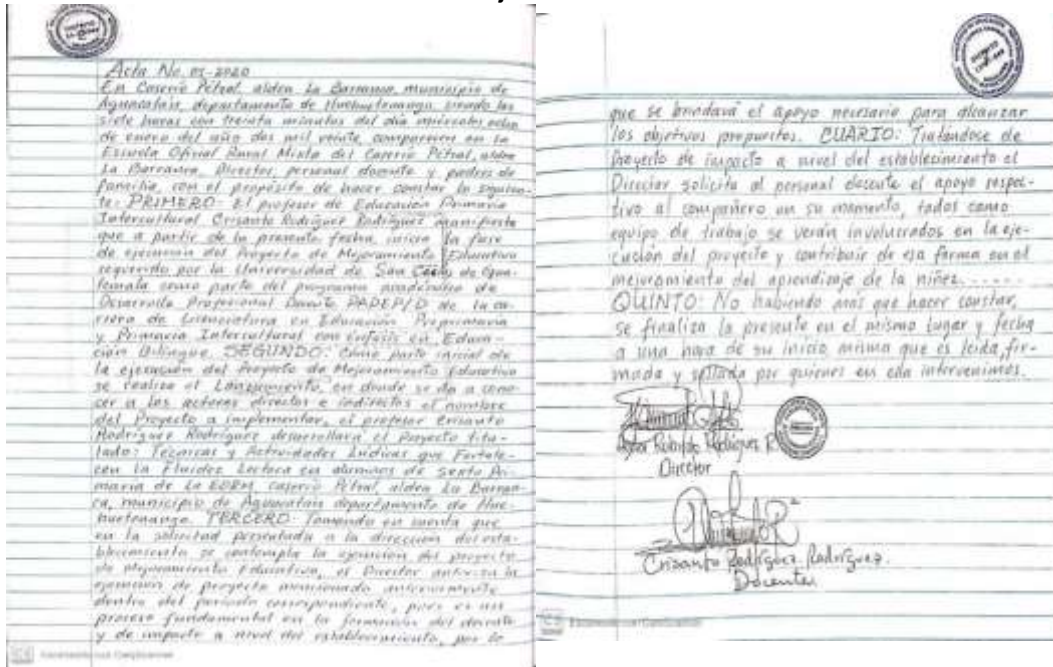 Acta No. 01-2020
En Caserío Petnal, aldea La Barranca, municipio de
Aguacatán, departamento de Huehuetenango, siendo las
siete horas con treinta minutos del día miércoles ocho
de enero del año dos mil veinte comparecen en la
Escuela Oficial Rural Mixta del Caserío Petnal, aldea
La Barranca, Director, personal docente y padres de
familia, con el propósito de hacer constar lo siguien-
te: PRIMERO: El profesor de Educación Primaria
Intercultural Crisanto Rodríguez Rodríguez manifiesta
que a partir de la presente fecha, inicia la fase
de ejecución del Proyecto de Mejoramiento Educativo
requerido por la Universidad de San Carlos de Gua-
temala como parte del programa académico de
Desarrollo Profesional Docente PADEP/D de la ca-
rrera de Licenciatura en Educación Preprimaria
y Primaria Intercultural con énfasis en Educa-
ción Bilingüe. SEGUNDO: Como parte inicial de
la ejecución del Proyecto de Mejoramiento Educativo
se realiza el Lanzamiento, en donde se da a cono-
cer a los actores directos e indirectos el nombre
del Proyecto a implementar, el profesor Crisanto
Rodríguez Rodríguez desarrollará el Proyecto titu-
lado: Técnicas y Actividades Lúdicas que Fortale-
cen la Fluidez Lectora en alumnos de sexto Pri-
maria de La EORM, caserío Petnal, aldea La Barran-
ca, municipio de Aguacatán departamento de Hue-
huetenango. TERCERO: Tomando en cuenta que
en la solicitud presentada a la dirección del esta-
blecimiento se contempla la ejecución del proyecto
de mejoramiento Educativo, el Director autoriza la
ejecución de proyecto mencionado anteriormente
dentro del periodo correspondiente, pues es un
proceso fundamental en la formación del docente
y de impacto a nivel del establecimiento, por lo
que se brindará el apoyo necesario para alcanzar
los objetivos propuestos. CUARTO: Tratándose de
Proyecto de impacto a nivel del establecimiento el
Director solicita al personal docente el apoyo respec-
tivo al compañero en su momento, todos como
equipo de trabajo se verán involucrados en la eje-
cución del proyecto y contribuir de esa forma en el
mejoramiento del aprendizaje de la niñez.-----
QUINTO: No habiendo más que hacer constar,
se finaliza la presente en el mismo lugar y fecha
a una hora de su inicio, misma que es leída, fir-
mada y sellada por quienes en ella intervenimos.
Rodríguez R
Director
Crisanto Rodríguez Rodríguez.
Docente
Escaneado con CamScanner